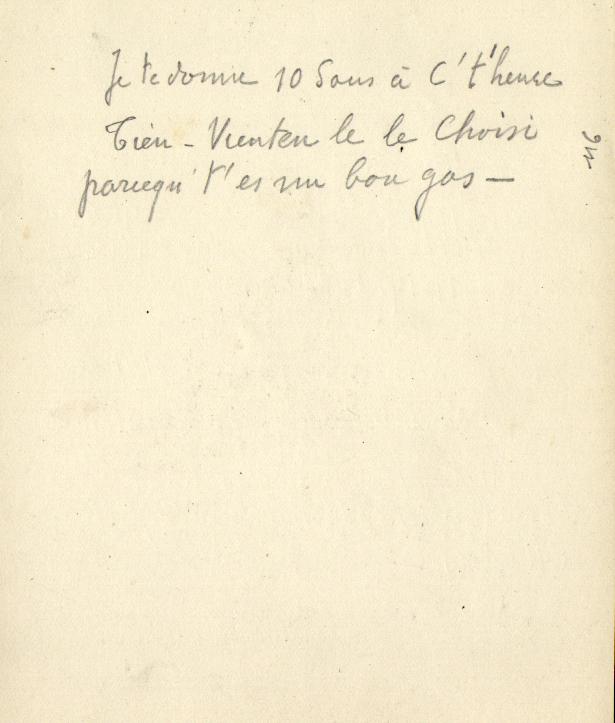 Je te donne 10 Sous à C't'heure
Tien - Vienten le le Choisi
parcequ' t' es un bon gas —